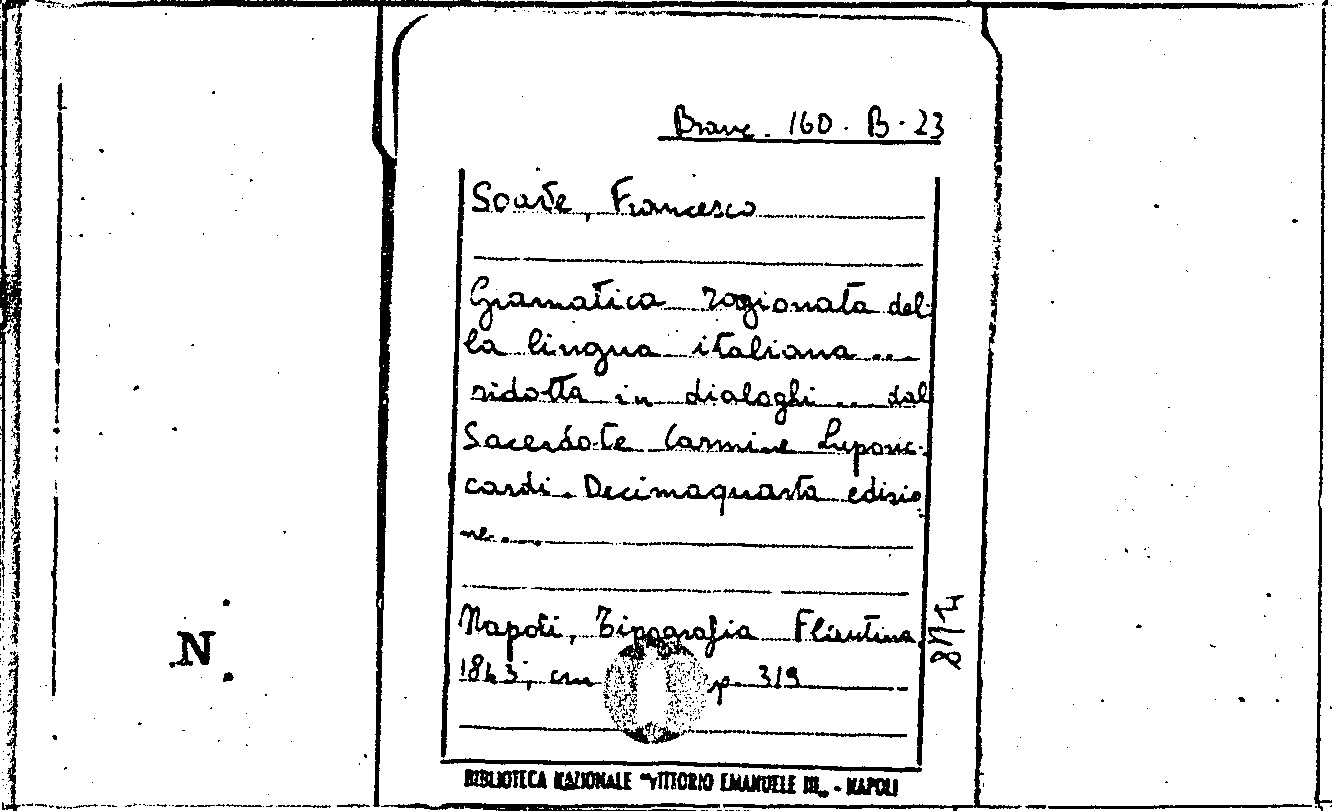 Branc. 160. B. 23
Soave, Francesco
Gramatica ragionata del-
la lingua italiana ....
ridotta in dialoghi ... dal
Sacerdote Carmine Luponc-
cardi. Decimaquarta edizio
ne ....
Napoli, Tipografia Flautina
1843, cm p. 319
N
BIBLIOTECA NAZIONALE "VITTORIO EMANUELE III„ - NAPOLI